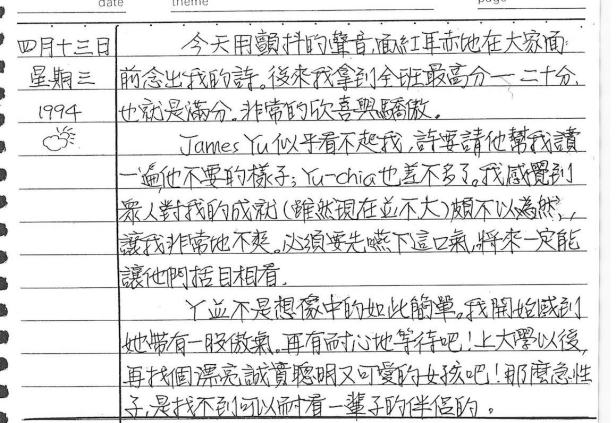 date
theme
page
四月十三日 今天用顫抖的聲音,面紅耳赤地在大家面
星期三 前念出我的詩。後來我拿到全班最高分—二十分,
1994 也就是滿分。非常的欣喜與驕傲。
James Yu 似乎看不起我,詩要請他幫我讀
一遍他不要的樣子;Yu-chia也差不多了。我感覺到
眾人對我的成就(雖然現在並不大)頗不以為然,
讓我非常地不爽。必須要先嚥下這口氣,將來一定能
讓他們括目相看.
丫並不是想像中的如此簡單。我開始感到
她帶有一股傲氣。再有耐心地等待吧!上大學以後,
再找個漂亮誠實聰明又可愛的女孩吧!那麼急性
子,是找不到可以耐看一輩子的伴侶的。